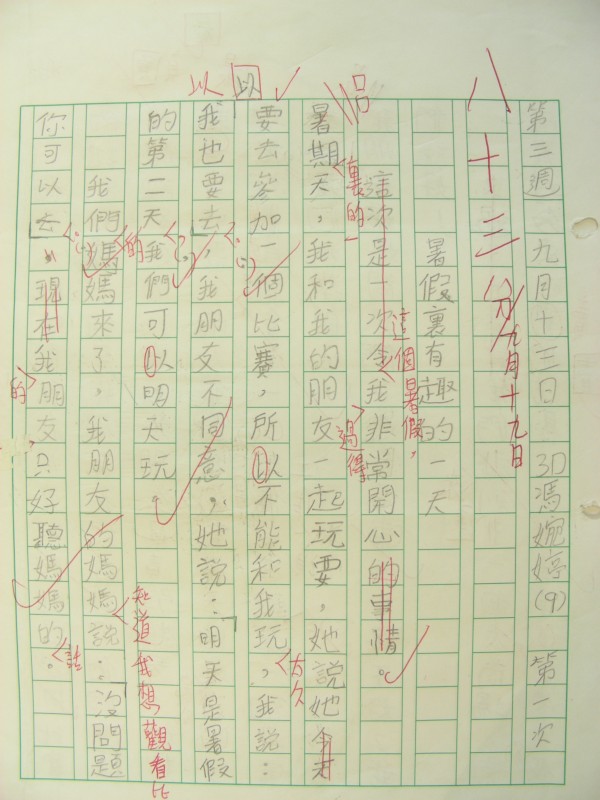 第三週 九月十三日 3D馮婉婷(9) 第一次
八十三分 九月十九日
暑假裏有趣的一天
這次是一次令我非常開心的事情。
這個暑假,
過得
侶
暑期天,我和我的朋友一起玩耍,她說她今天
裏的一
以 以
要去參加一個比賽,所以不能和我玩,我說:
我也要去」,我朋友不同意,她說:「明天是暑假
的第二天我們可以明天玩。
我們媽媽來了,我朋友的媽媽說:「沒問題
的
知道我想觀看比
你可以去」。現在我朋友只好聽媽媽的。
的
話